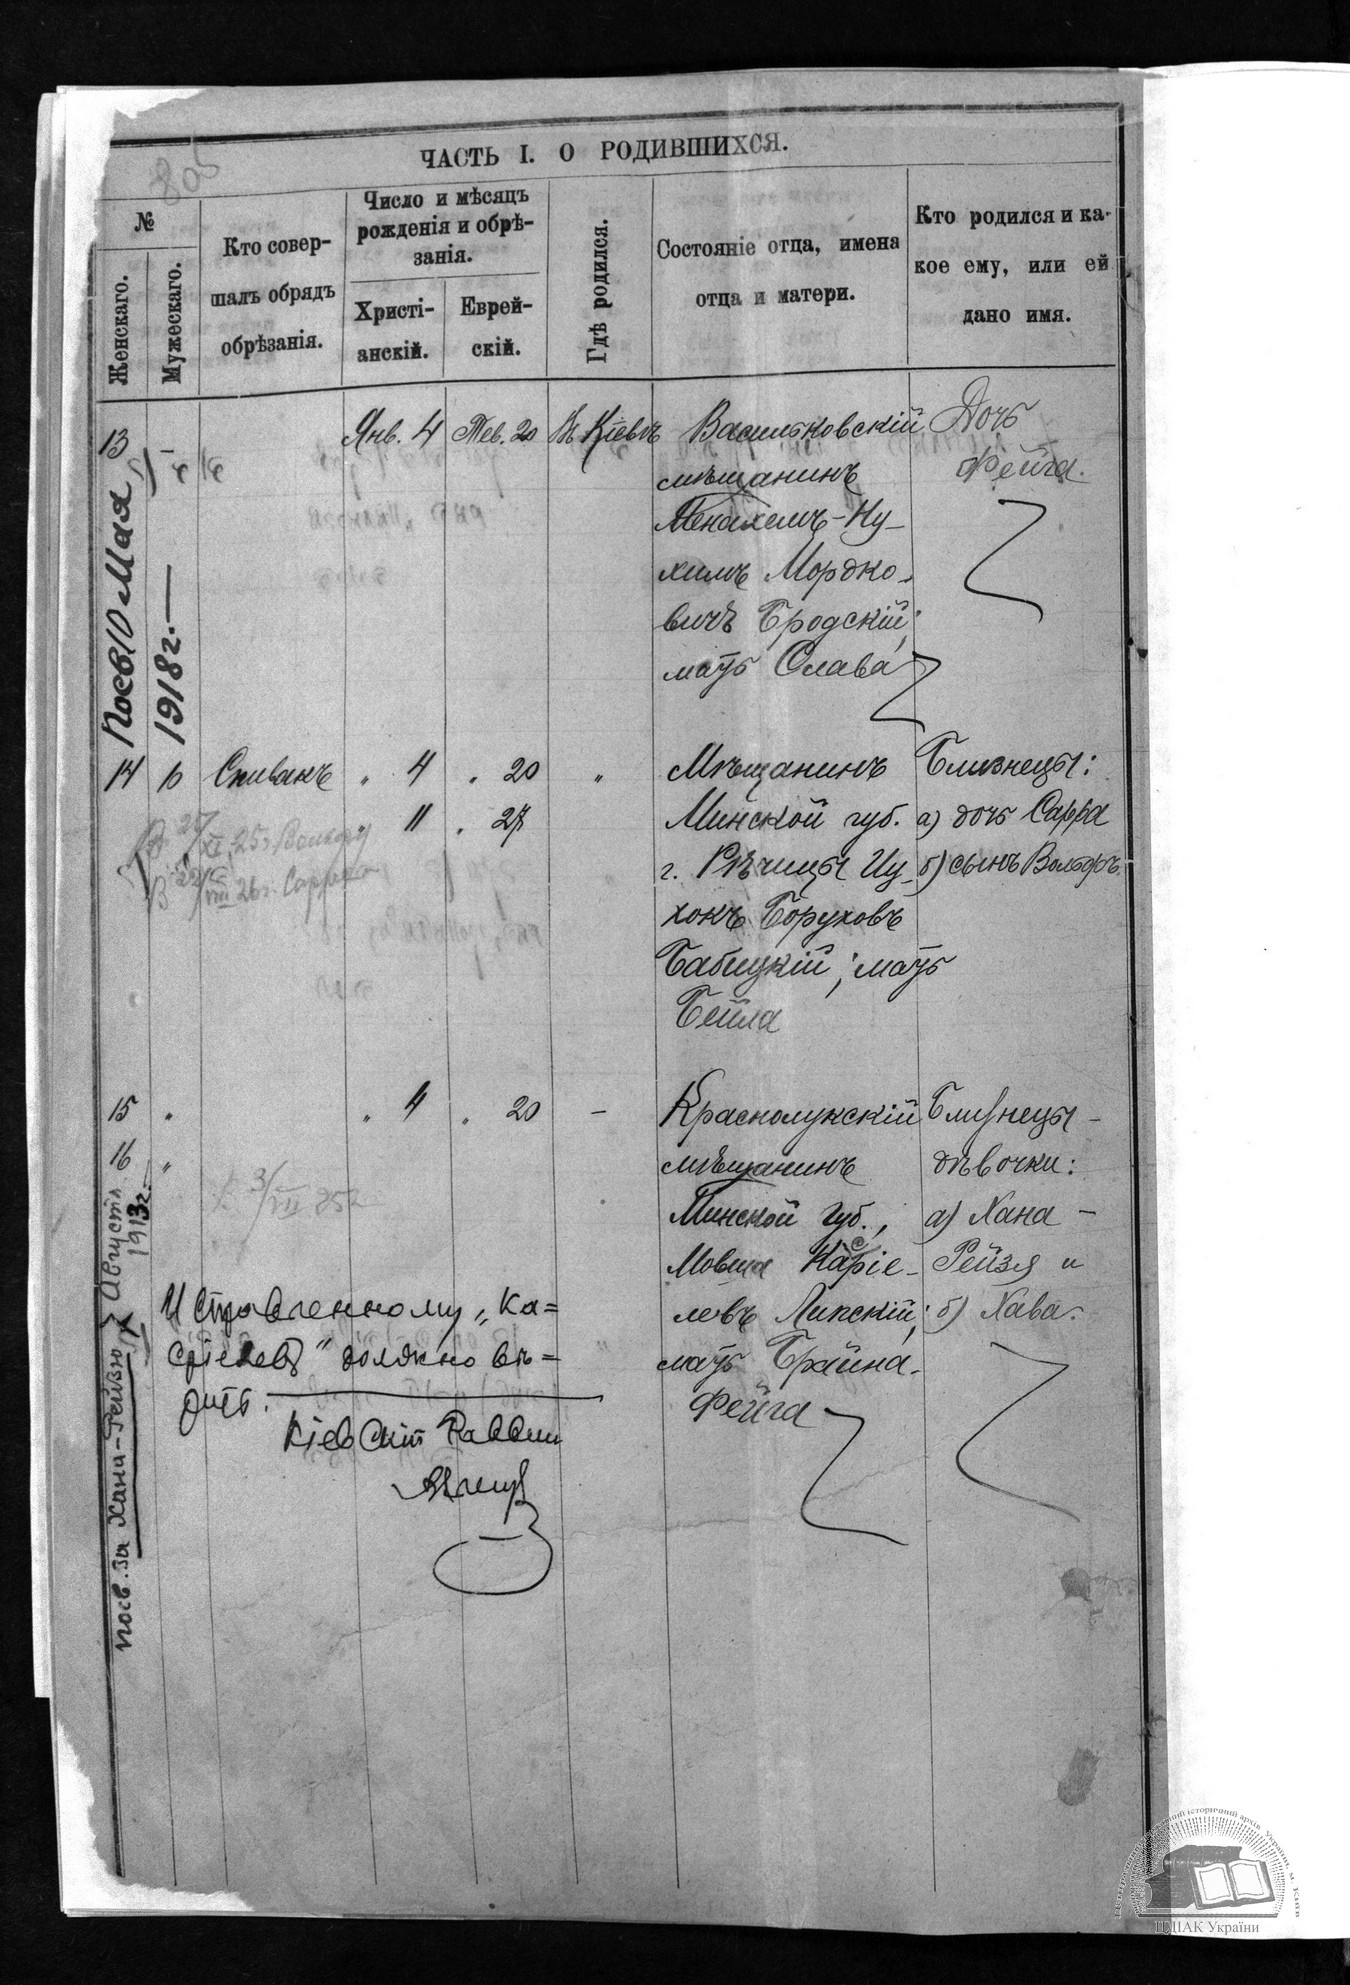 ЧАСТЬ I. О РОДИВШИХСЯ.
805
№
Женскаго.
Мужескаго.
Кто совер-
шалъ обрядъ
обрѣзанія.
Число и мѣсяцъ
рожденія и обрѣ-
занія.
Христі-
анскій.
Еврей-
скій.
Гдѣ родился.
Состояніе отца, имена
отца и матери.
Кто родился и ка-
кое ему, или ей
дано имя.
13 Янв. 4 Тев. 20 Въ Кіевѣ
Васильковскій
мѣщанинъ
Менахемъ-Ну-
химъ Мордко-
вичъ Бродскій;
мать Слава
Дочь
Фейга.
10 Мая
1918 г.
14 10 Спивакъ " 4 " 20 "
" 11 " 27
Мѣщанинъ
Минской губ.
г. Рѣчицы Иц-
хокъ Боруховъ
Бабицкій; мать
Бейла
Близнецы:
а) дочь Сарра
б) сынъ Вольфъ
15 " " 4 " 20 –
16 "
Краснолукскій
мѣщанинъ
Минской губ.,
Мовша Каріе-
с
левъ Липскій;
мать Брайна-
Фейга
Близнецы –
дѣвочки:
а) Хана –
Рейзя и
б) Хава.
посв. за Хана-Рейзю
Августа
1913 г.
Исправленному „Ка-
сріелевъ" должно вѣ-
рить.
Кіевскій Раввин
ЦДІАК України